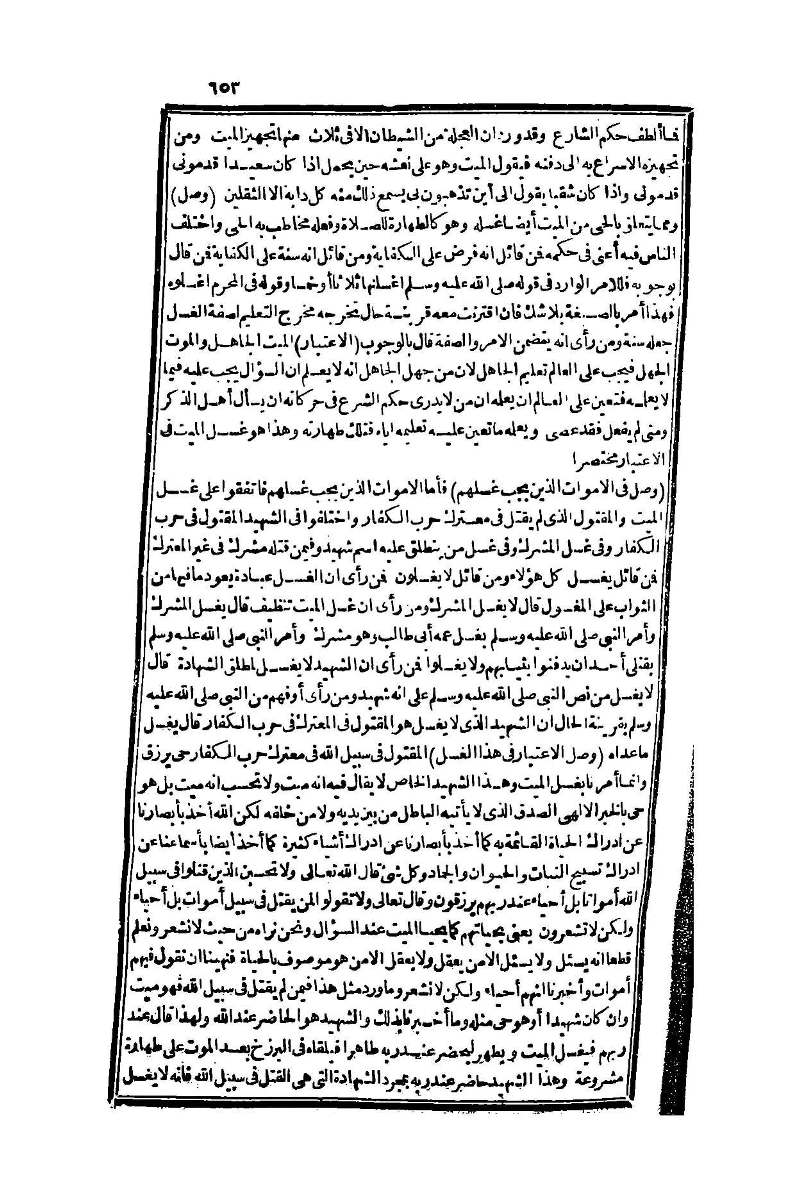 ٦٥٣
فما ألطف حكم الشارع وقد ورد ان العجلة من الشيطان الا فى ثلاث منها تجهيز الميت ومن
تجهيزه الاسراع به الى دفنه فيقول الميت وهو على نعشه حين يحمل اذا كان سعيدا قدمونى
قدمونى واذا كان شقيا يقول الى أين تذهبون بى يسمع ذلك منه كل دابة الا الثقلين (وصل)
ومما يتعلق بالحى من الميت أيضا غسله وهو كالطهارة للصلاة وفعله مخاطب به الحى واختلف
الناس فيه أعنى فى حكمه فن قائل انه فرض على الكفاية ومن قائل انه سنة على الكفاية فن قال
بوجوبه فللامر الوارد فى قوله صلى الله عليه وسلم اغسلنها ثلاثا أو خمسا وقوله فى المحرم اغسلوه
فهذا أمر بالصيغة بلاشك فان اقترنت معه قرينة حال تخرجه مخرج التعليم لصفة الغسل
جعله سنة ومن رأى انه يتضمن الامر والصفة قال بالوجوب (الاعتبار) الميت الجاهل والموت
الجهل فيجب على العالم تعليم الجاهل لان من جهل الجاهل انه لا يعلم ان السؤال يجب عليه فيما
لا يعلمه فتعين على العالم ان يعلمه ان من لا يدرى حكم الشرع فى حركاته ان يسأل أهل الذكر
ومتى لم يفعل فقد عصى ويعلمه ما تعين عليه تعليمه اياه فتلك طهارته وهذا هو غسل الميت فى
الاعتبار مختصرا
(وصل فى الاموات الذين يجب غسلهم) فأما الاموات الذين يجب غسلهم فاتفقوا على غسل
الميت والمقتول الذى لم يقتل فى معترك حرب الكفار واختلفوا فى الشهيد المقتول فى حرب
الكفار وفى غسل المشرك وفى غسل من ينطلق عليه اسم شهيد وفيمن قتله مشرك فى غير المعترك
فن قائل يغسل كل هؤلاء ومن قائل لا يغسلون فن رأى ان الغسل عبادة يعود ما فيها من
الثواب على المغسول قال لا يغسل المشرك ومن رأى ان غسل الميت تنظيف قال يغسل المشرك
وأمر النبى صلى الله عليه وسلم بغسل عمه أبى طالب وهو مشرك وأمر النبى صلى الله عليه وسلم
بقتلى أحد ان يدفنوا بثيابهم ولا يغسلوا فن رأى ان الشهيد لا يغسل لمطلق الشهادة قال
لا يغسل من نص النبى صلى الله عليه وسلم على انه شهيد ومن رأى أو فهم من النبى صلى الله عليه
وسلم بقرينة الحال ان الشهيد الذى لا يغسل هو المقتول فى المعترك فى حرب الكفار قال يغسل
ماعداه (وصل الاعتبار فى هذا الغسل) المقتول فى سبيل الله فى معترك حرب الكفار حى يرزق
وانما أمرنا بغسل الميت وهذا الشهيد الخاص لا يقال فيه انه ميت ولا تحسب انه ميت بل هو
حى بالخبر الالهى الصدق الذى لا يأتيه الباطل من بين يديه ولا من خلفه لكن الله أخذ بأبصارنا
عن ادراك الحياة القائمة به كما أخذ بأبصارنا عن ادراك أشياء كثيرة كما أخذ أيضا بأسماعنا عن
ادراك تسبيح النبات والحيوان والجماد وكل شئ قال الله تعالى ولا تحسبن الذين قتلوا فى سبيل
الله أمواتا بل أحياء عند ربهم يرزقون وقال تعالى ولا تقولوا لمن يقتل فى سبيل أموات بل أحياء
ولكن لا تشعرون يعنى بحياتهم كما يحيا الميت عند السؤال ونحن نراه من حيث لا نشعر ونعلم
قطعا انه يسئل ولا يسئل الا من يعقل ولا يعقل الا من هو موصوف بالحياة فنهينا ان نقول فيهم
أموات وأخبرنا انهم أحياء ولكن لا نشعر وما ورد مثل هذا فيمن لم يقتل فى سبيل الله فهو ميت
وان كان شهيدا أو هو حى مثله وما أخبرنا بذلك والشهيد هو الحاضر عند الله ولهذا قال عند
ربهم فيغسل الميت ويطهر ليحضر عند ربه طاهرا فيلقاه فى البرزخ بعد الموت على طهارة
مشروعة وهذا الشهيد حاضر عند ربه بمجرد الشهادة التى هى القتل فى سبيل الله فانه لا يغسل